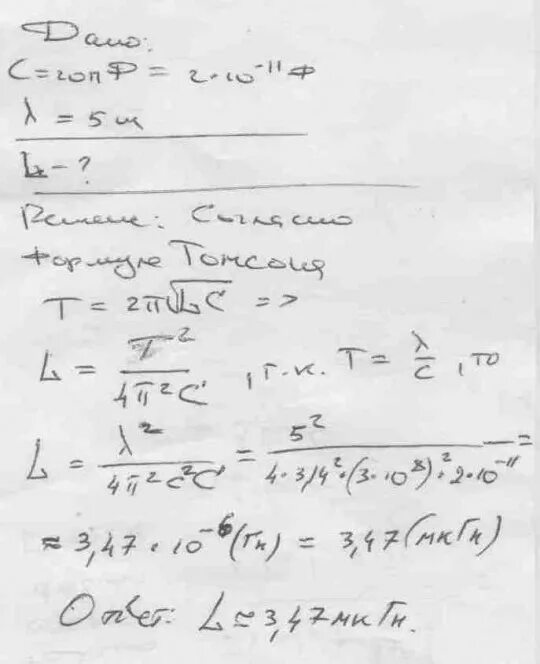 Дано:
C = 20 пФ = 2·10⁻¹¹ Ф
λ = 5 м
L - ?
Решение: Согласно
формуле Томсона
T = 2π√LC =>
L = T²/4π²C , т.к. T = λ/c , то
L = λ²/4π²c²C = 5²/4·3,14²·(3·10⁸)²·2·10⁻¹¹ =
≈ 3,47·10⁻⁶ (Гн) = 3,47 (мкГн)
Ответ: L ≈ 3,47 мкГн.